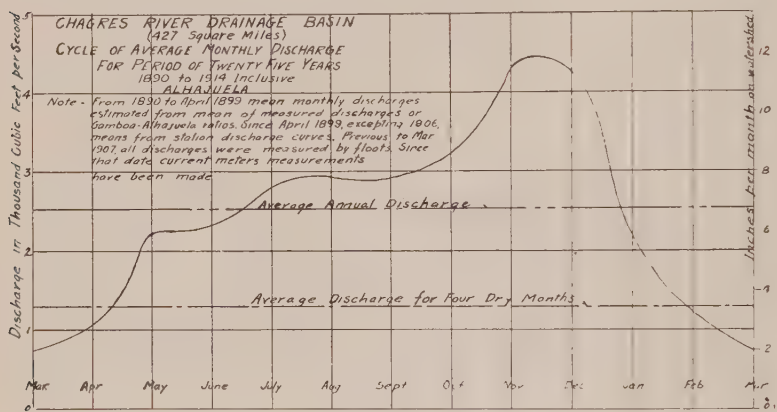 CHAGRES RIVER DRAINAGE BASIN
(427 Square Miles)
CYCLE OF AVERAGE MONTHLY DISCHARGE
FOR PERIOD OF TWENTY FIVE YEARS
1890 to 1914 Inclusive
ALHAJUELA
Note - From 1890 to April 1899 mean monthly discharges
estimated from mean of measured discharges or
Gamboa-Alhajuela ratios. Since April 1899, excepting 1906,
means from station discharge curves. Previous to Mar
1907, all discharges were measured by floats. Since
that date current meters measurements
have been made
Average Annual Discharge
Average Discharge for Four Dry Months
Discharge in Thousand Cubic Feet per Second
5
4
3
2
1
0
Inches per month on watershed
12
10
8
6
4
2
0
Mar Apr May June July Aug Sept Oct Nov Dec Jan Feb Mar